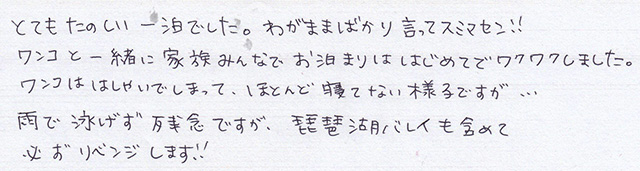 とてもたのしい一泊でした。わがままばかり言ってスミマセン!!
ワンコと一緒に家族みんなでお泊まりははじめてでワクワクしました。
ワンコははしゃいでしまって、ほとんど寝てない様子ですが…
雨で泳げず残念ですが、琵琶湖バレイも含めて
必ずリベンジします!!